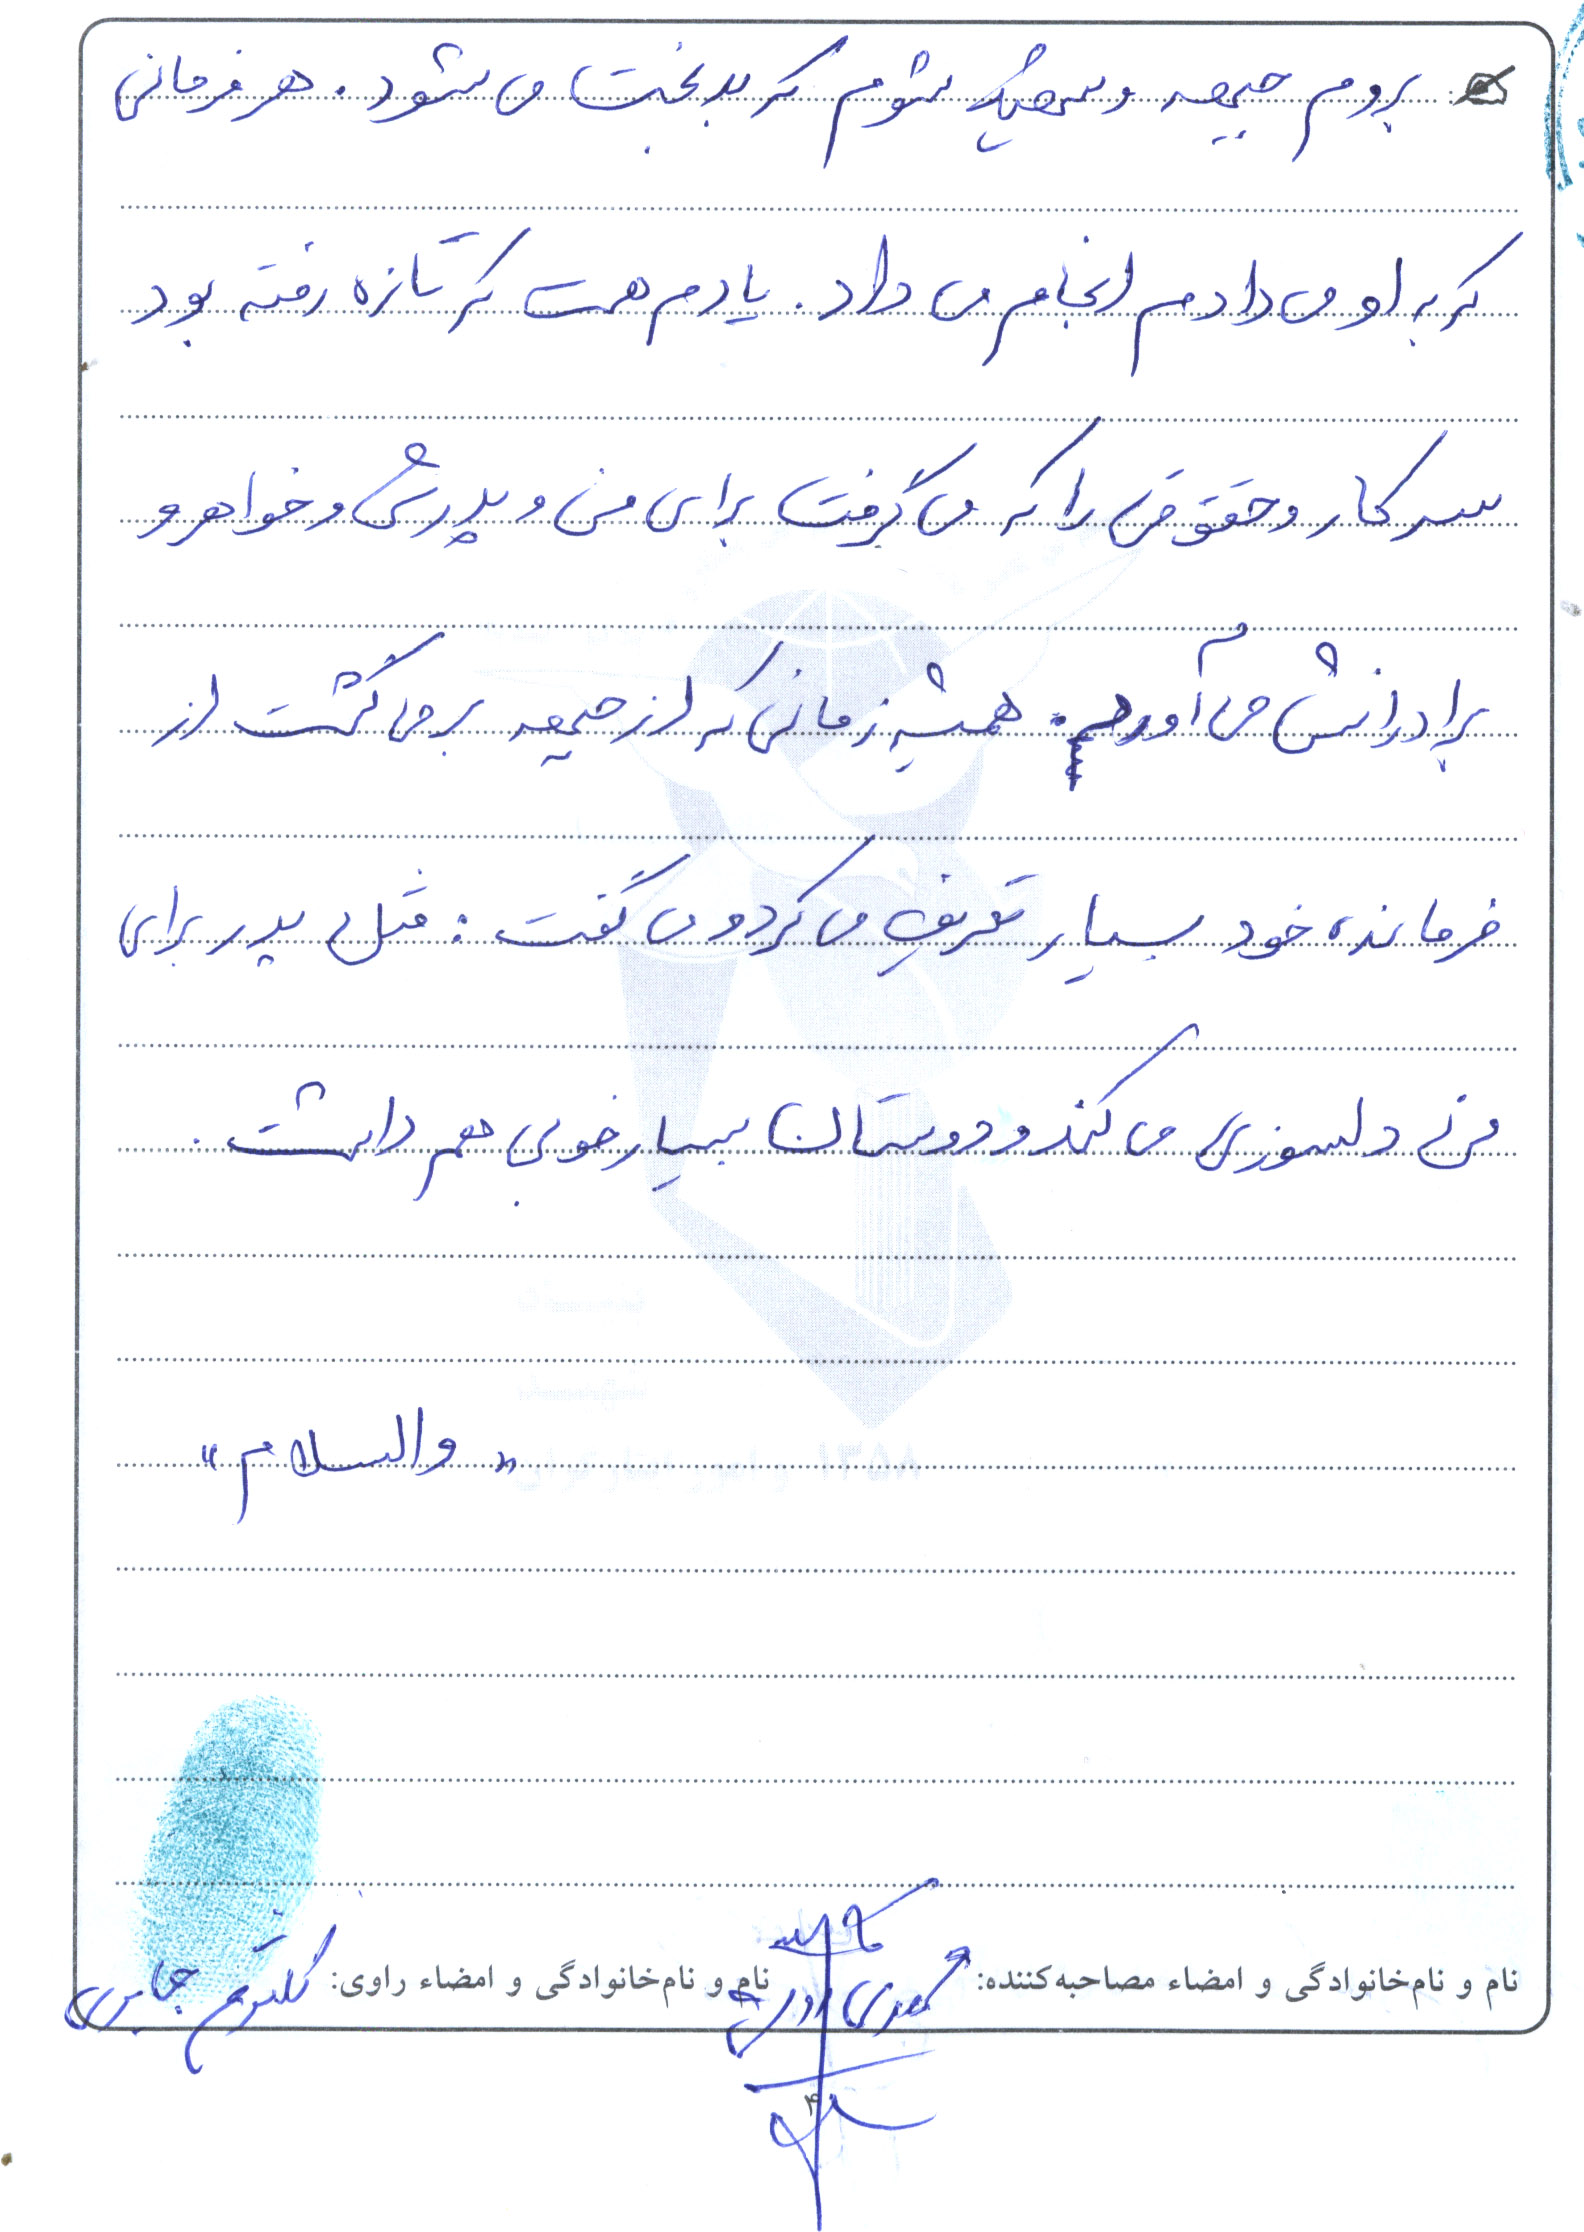 بروم جبهه و شهید شوم که بدبخت می شود. هر فرمانی
که به او می دادم انجام می داد. یادم هست که تازه رفته بود
سر کار و حقوقی را که می گرفت برای من و پدرش و خواهر و
برادرانش می آورد. همیشه زمانی که از جبهه بر می گشت از
فرمانده خود بسیار تعریف می کرد و می گفت: مثل پدر برای
من دلسوزی می کند و دوستان بسیار خوبی هم داشت.
«والسلام»
نام و نام‌خانوادگی و امضاء مصاحبه‌کننده:
نام و نام‌خانوادگی و امضاء راوی: کلثوم جابری
۴